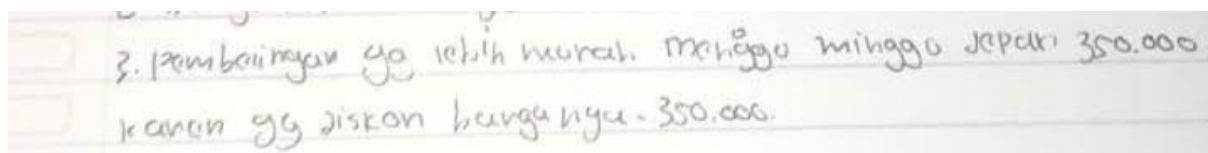 3. pembaingan yg lebih murah. manggo minggo separi 350.000
karan yg diskon harganya. 350.000.